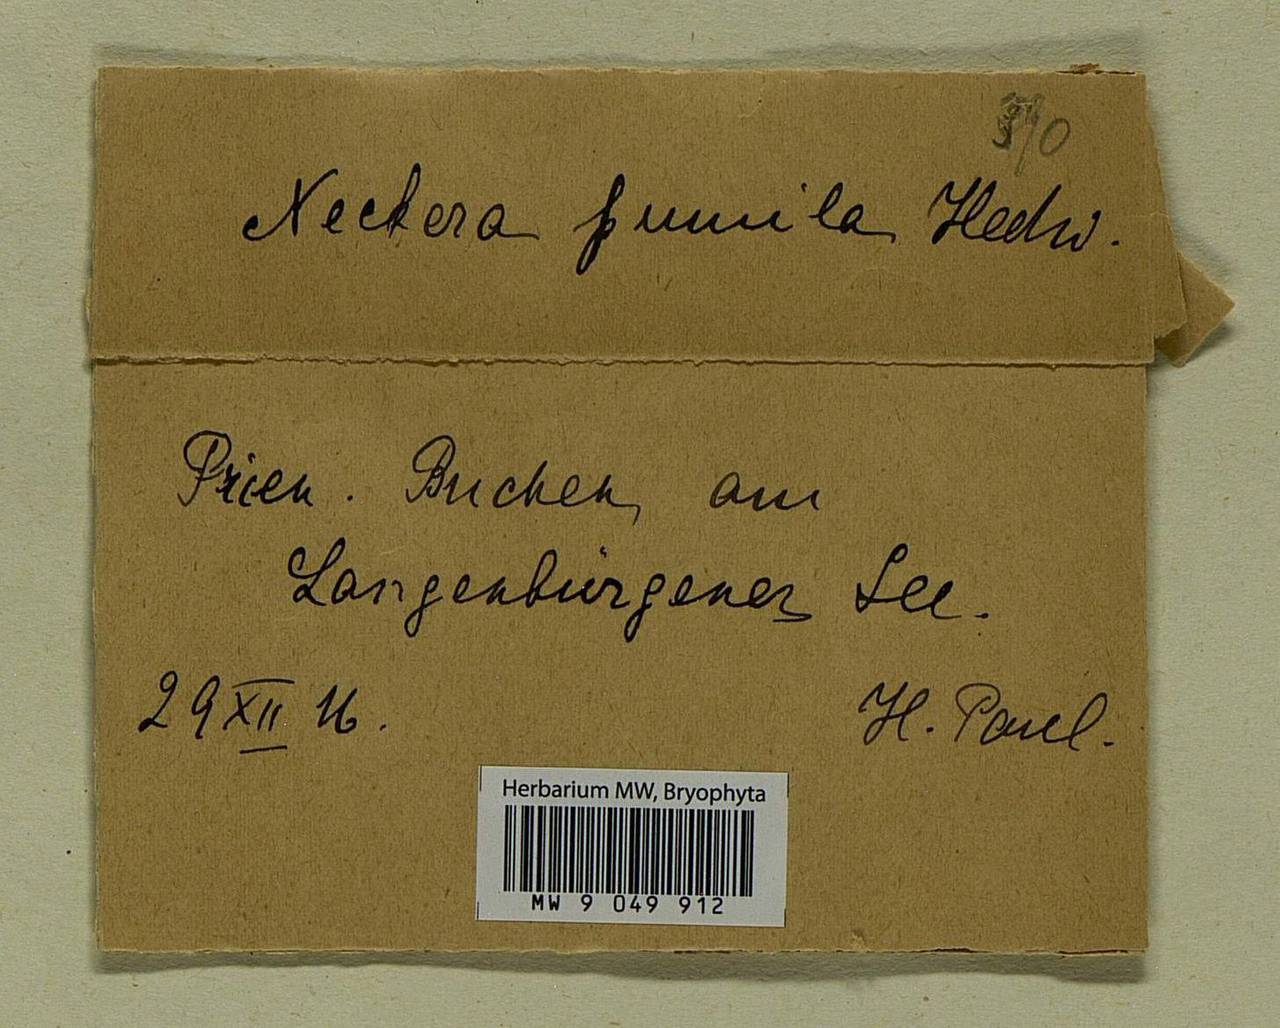 Neckera pumila Hedw.
Prien. Buchen am
Langenbürgener See.
29 XII 16.
H. Paul.
Herbarium MW, Bryophyta
MW 9 049 912